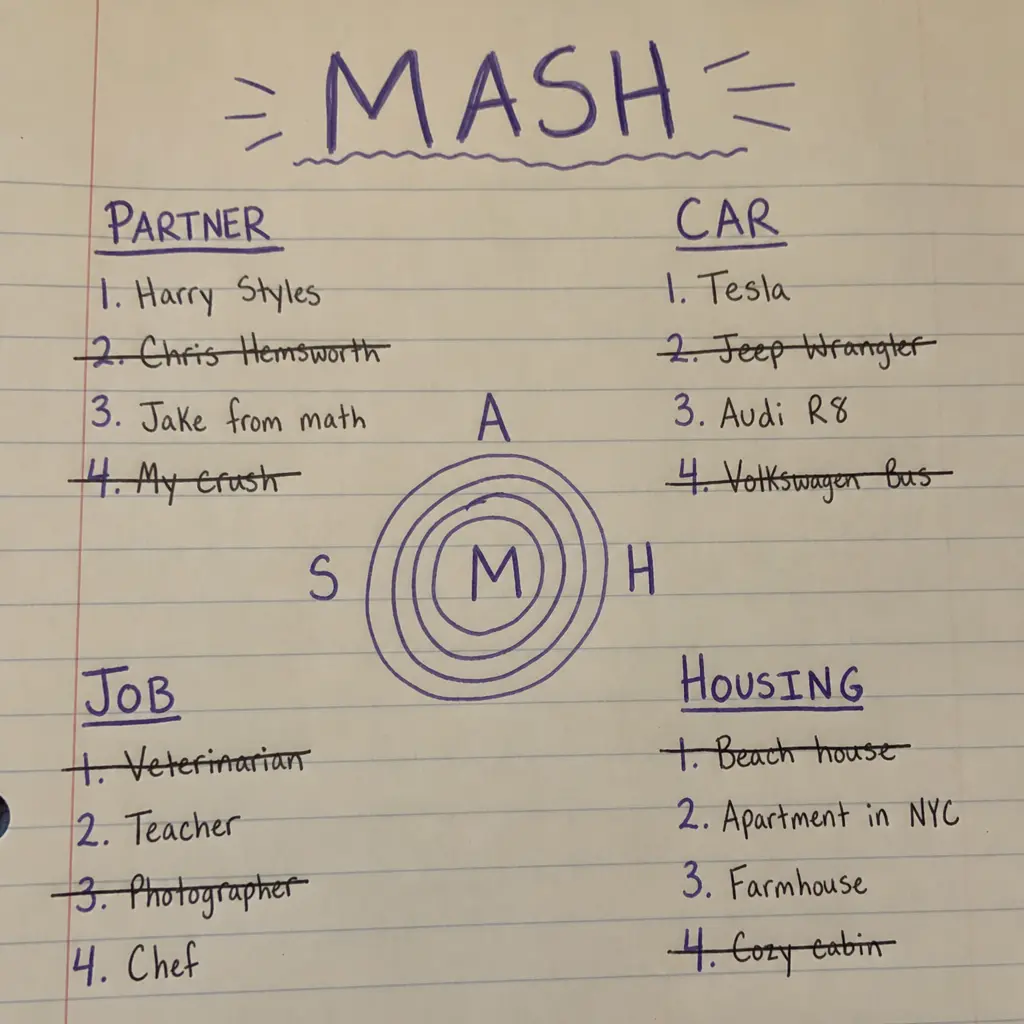 MASH
PARTNER
1. Harry Styles
2. Chris Hemsworth
3. Jake from math
4. My crush
CAR
1. Tesla
2. Jeep Wrangler
3. Audi R8
4. Volkswagen Bus
A
S
M
H
JOB
1. Veterinarian
2. Teacher
3. Photographer
4. Chef
HOUSING
1. Beach house
2. Apartment in NYC
3. Farmhouse
4. Cozy cabin